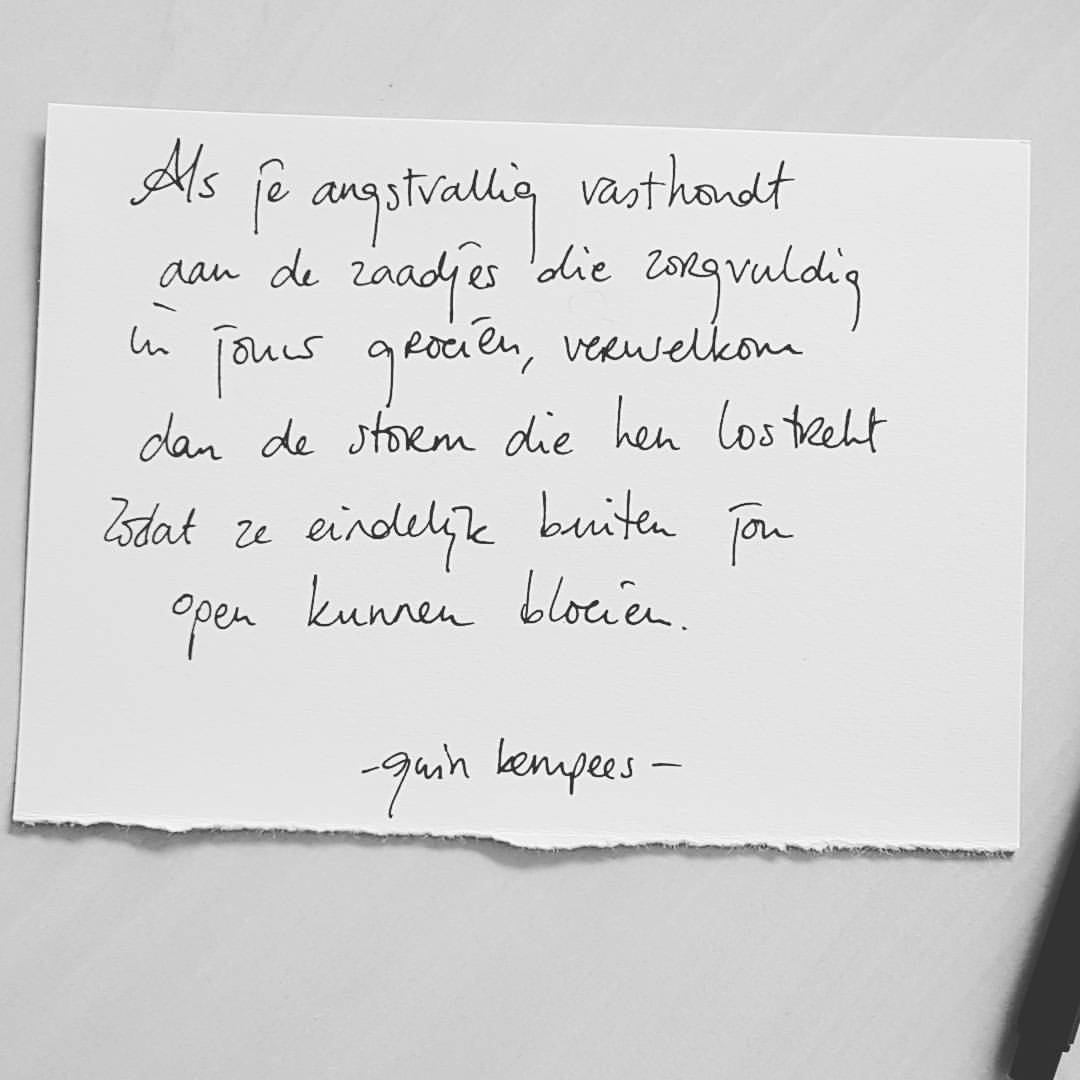 Als je angstvallig vasthoudt
aan de zaadjes die zorgvuldig
in jouw groeien, verwelkom
dan de storm die hen lostrekt
zodat ze eindelijk buiten jou
open kunnen bloeien.
- kempees -